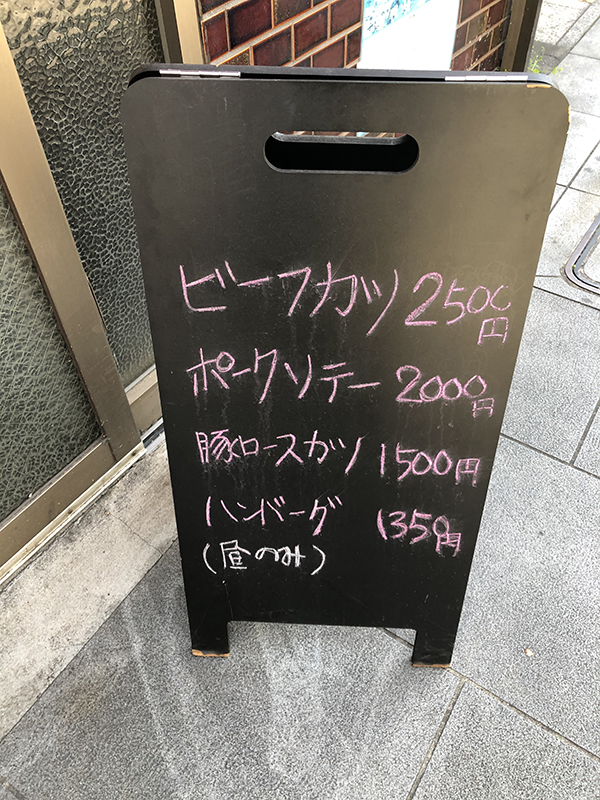 ビーフカツ 2500円
ポークソテー 2000円
豚ロースカツ 1500円
ハンバーグ 1350円
(昼のみ)